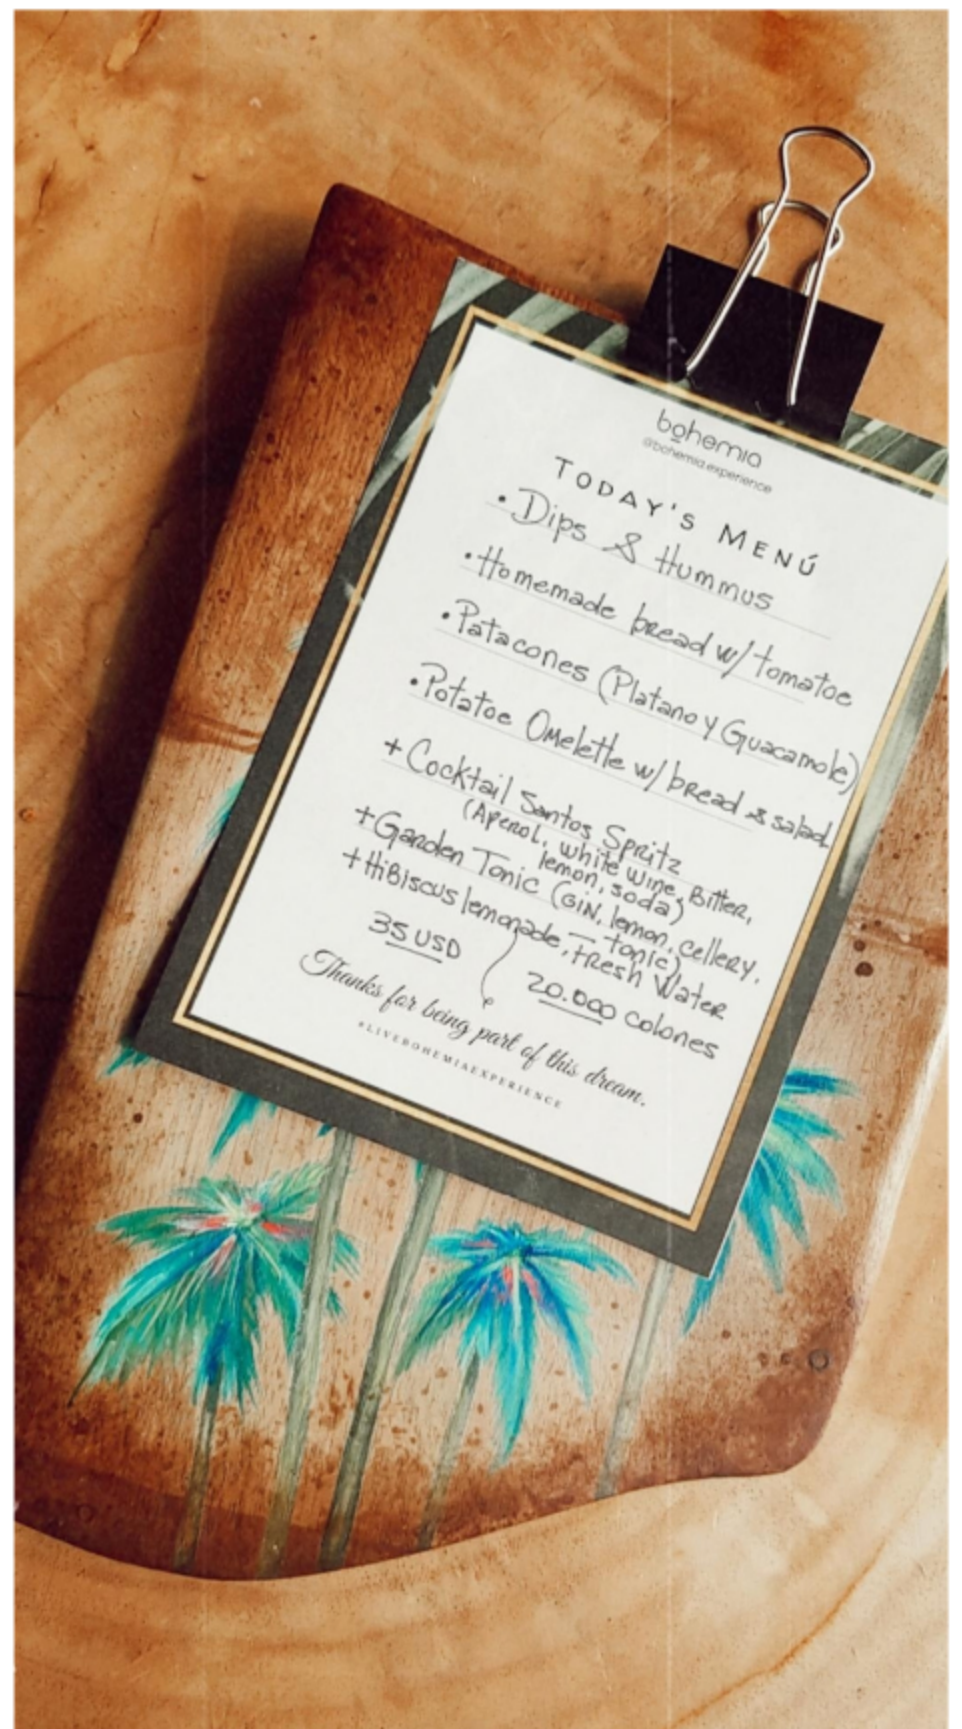 bohemia
@bohemia.experience
TODAY'S MENÚ
• Dips & Hummus
• Homemade bread w/ tomatoe
• Patacones (Platano y Guacamole)
• Potatoe Omelette w/ bread & salad
+ Cocktail Santos Spritz
(Aperol, white wine, Bitter,
lemon, soda)
+ Garden Tonic (GiN, lemon, cellery,
– tonic)
+ HiBiscus lemonade, Fresh Water
35 USD
20.000 colones
Thanks for being part of this dream.
#LIVEBOHEMIAEXPERIENCE